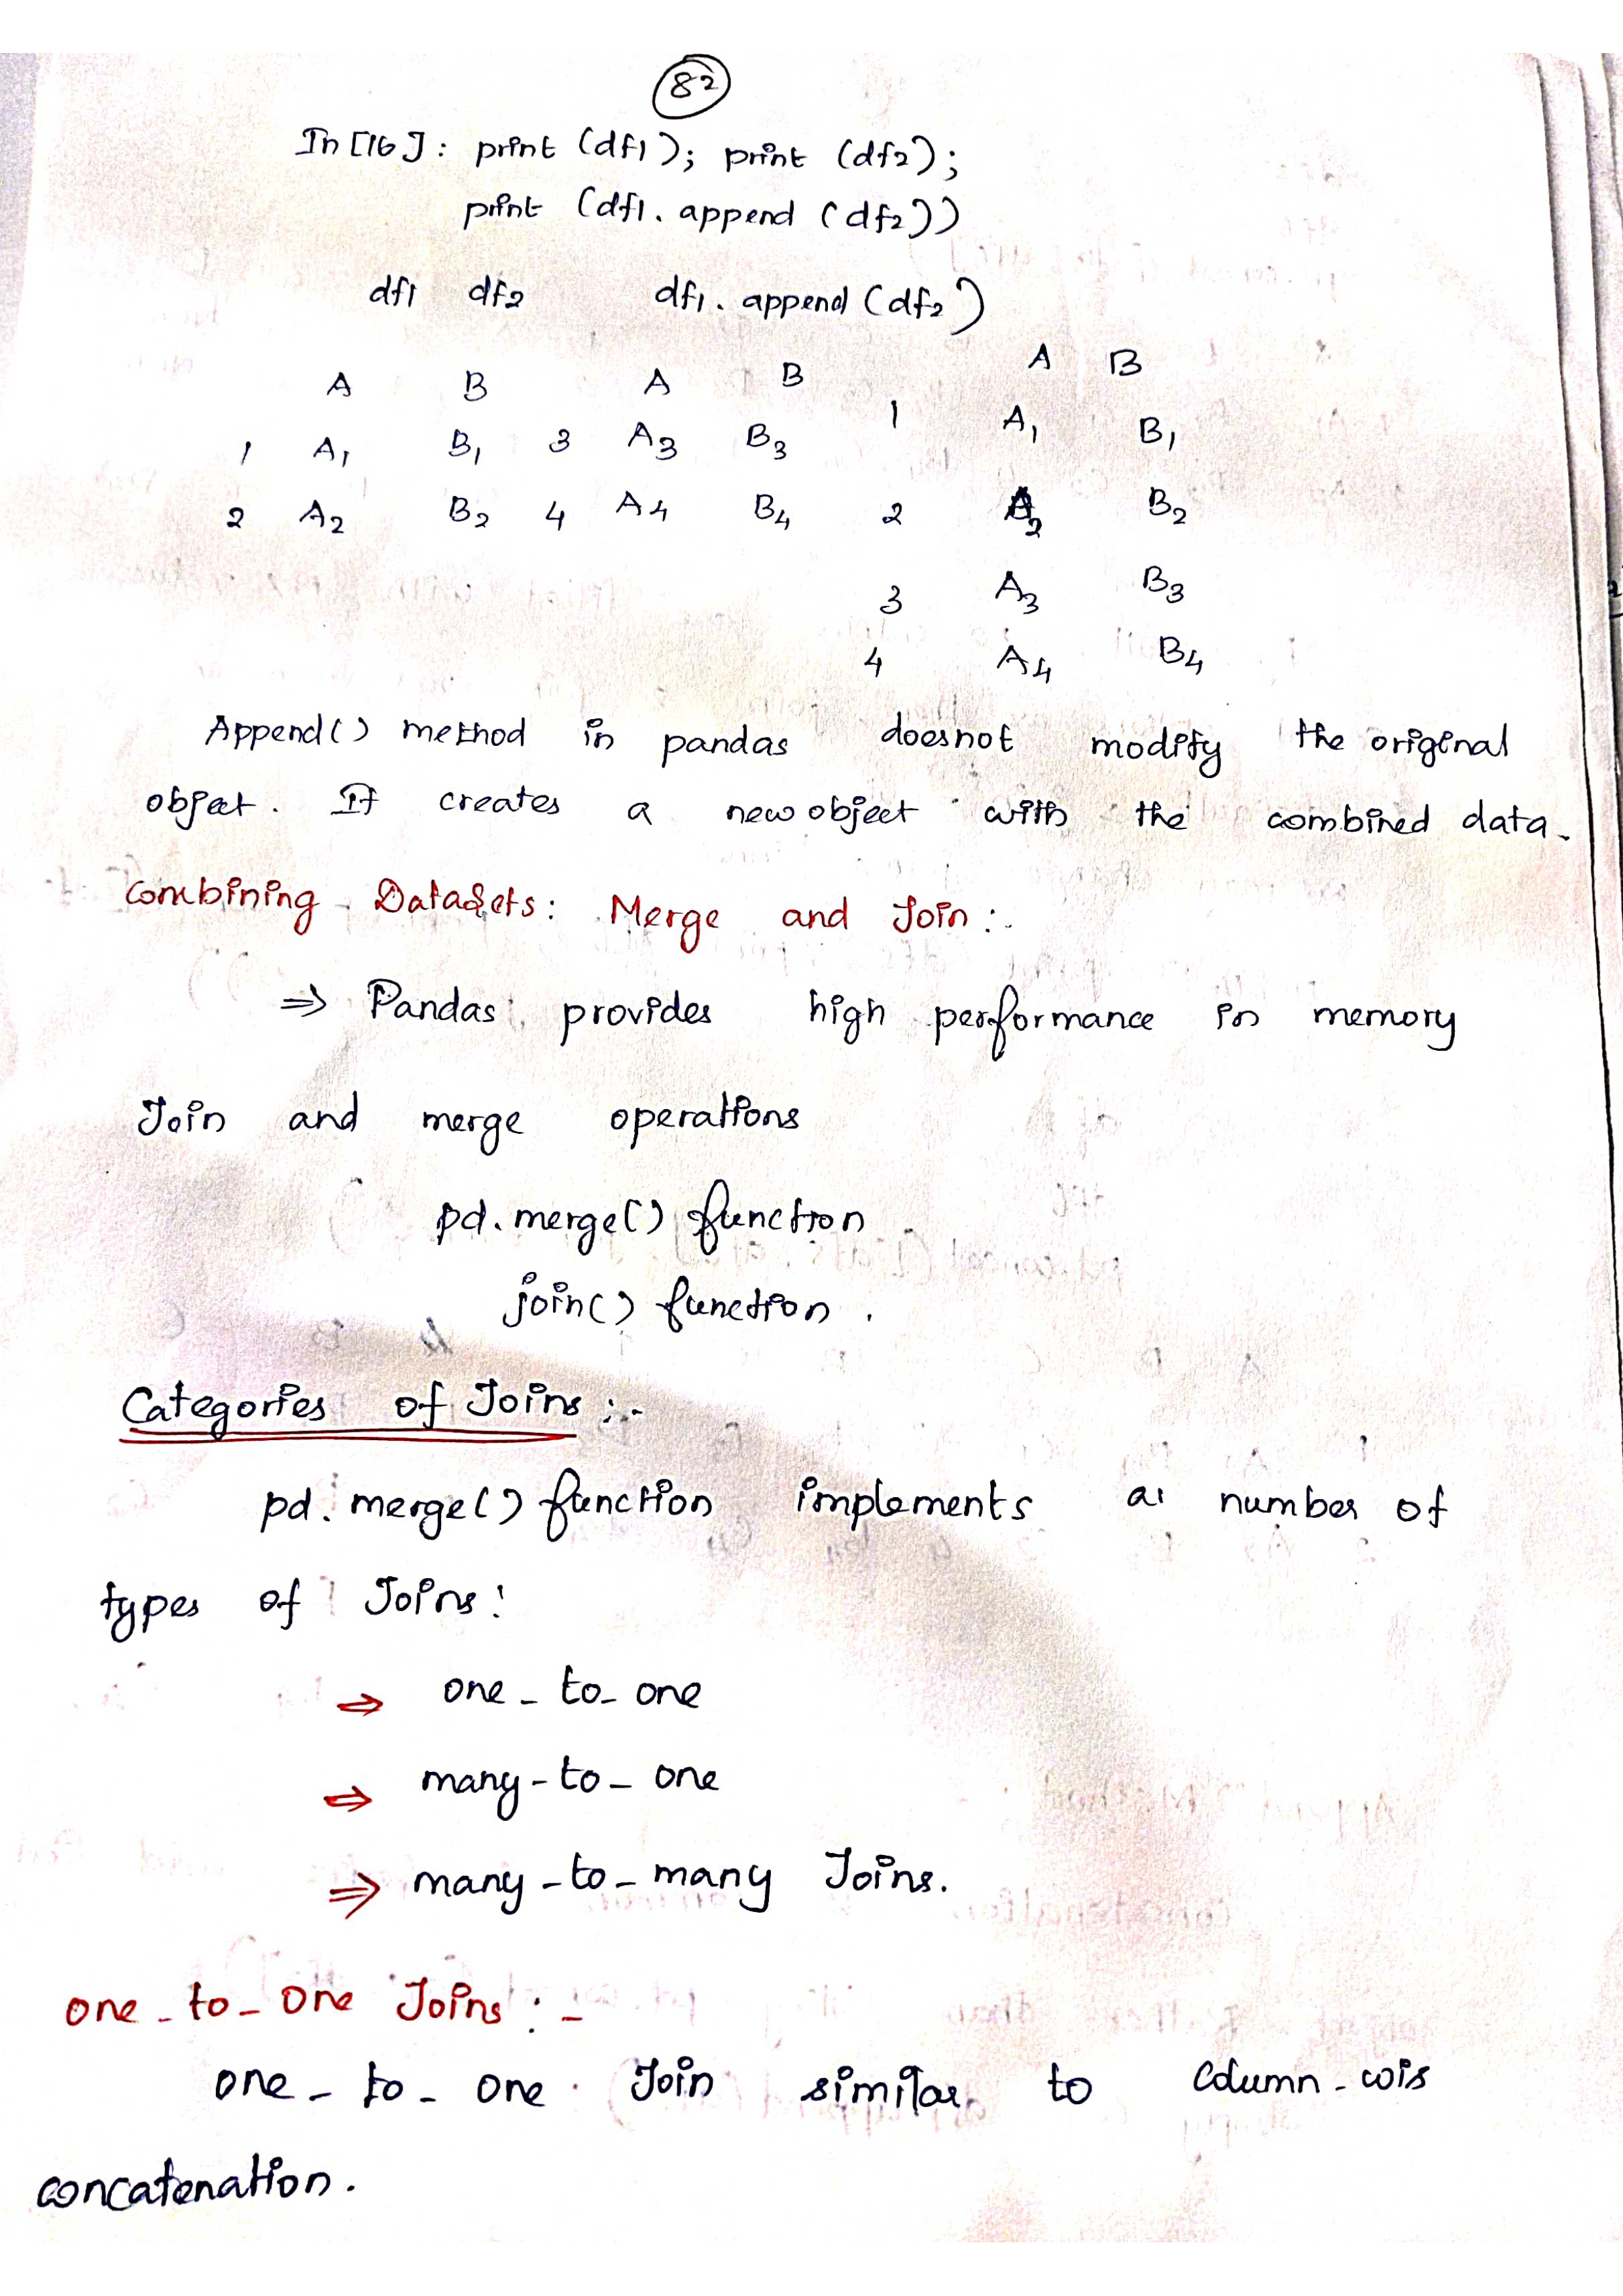 82
In[16]: print (df1); print (df2);
print (df1. append (df2))
df1 df2 df1. append (df2)
A B A B A B
1 A1 B1 3 A3 B3 1 A1 B1
2 A2 B2 4 A4 B4 2 A2 B2
3 A3 B3
4 A4 B4
Append() method in pandas doesnot modify the original
object. It creates a new object with the combined data.
Combining Datasets: Merge and Join :-
⇒ Pandas provides high performance in memory
Join and merge operations
pd.merge() function
join() function.
Categories of Joins :-
pd.merge() function implements a number of
types of Joins:
⇒ one-to-one
⇒ many-to-one
⇒ many-to-many Joins.
one-to-One Joins :-
one-to-one Join similar to Column-wis
concatenation.